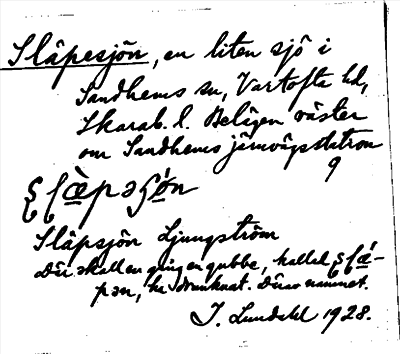 Släpesjön, en liten sjö i
Sandhems sn, Vartofta hd,
Skarab. l. Belägen väster
om Sandhems järnvägsstation
9
Släpsjön Ljungström
Där skall en gång en gubbe, kallad
ha drunknat. Därav namnet.
J. Lundahl 1928.